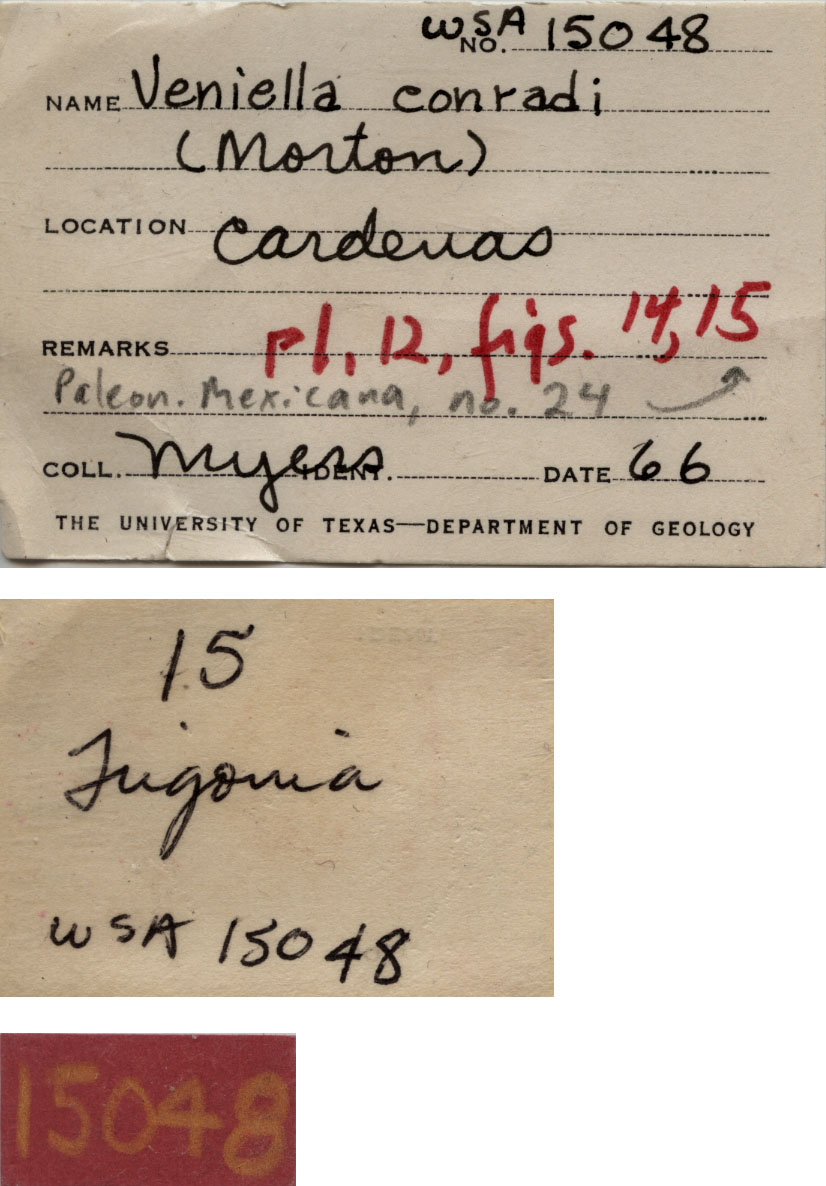 WSA
NO. 15048
NAME Veniella conradi
(Morton)
LOCATION Cardenas
REMARKS pl. 12, figs. 14, 15
Paleon. Mexicana, no. 24
COLL. Myers IDENT. DATE 66
THE UNIVERSITY OF TEXAS—DEPARTMENT OF GEOLOGY
15
Trigonia
WSA 15048
15048